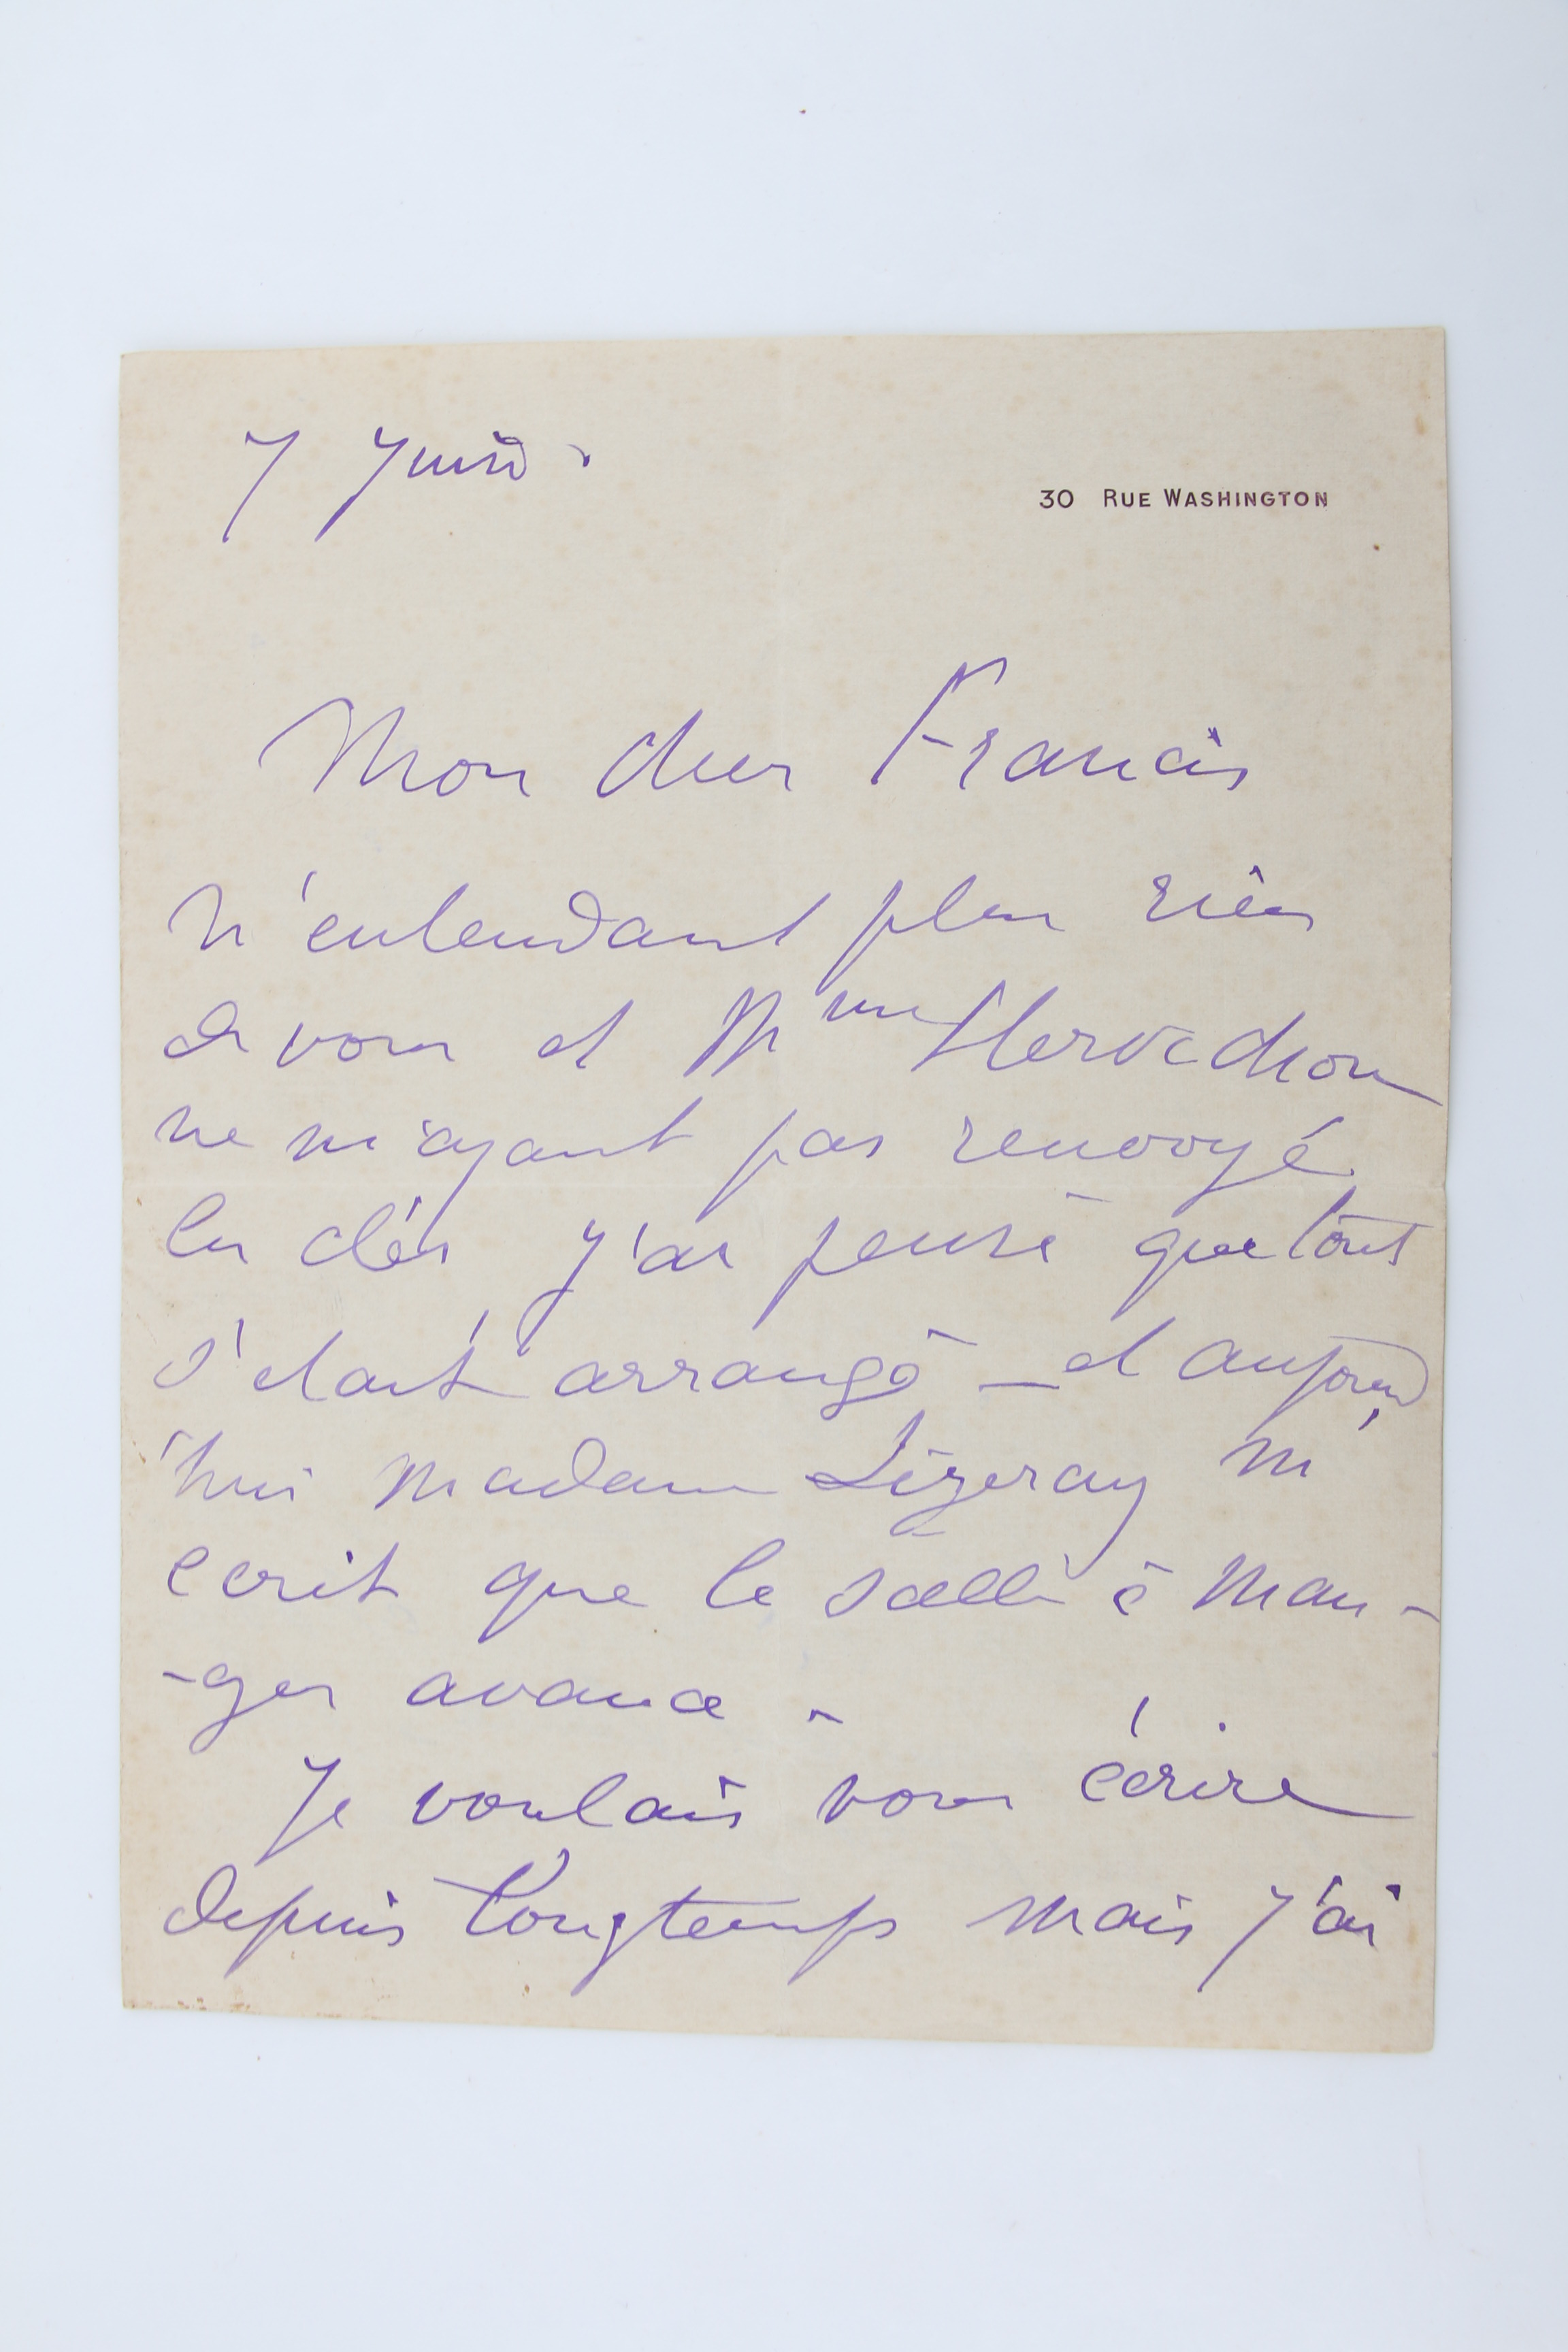 7 Juin
30 RUE WASHINGTON
Mon cher Francis
N'entendant plus rien
de vous et Mme
ne m'ayant pas renvoyé
les clés j'ai pensé que tout
s'etait arrangé _ et aujourd
'hui Madame Lizeray m'
ecrit que la salle à man-
-ger avance -
Je voulais vous écrire
depuis longtemps mais j'ai